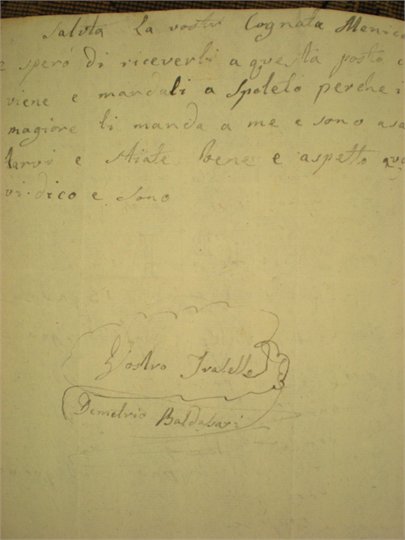 Saluta La vostr Cognata Menic
e speró di riceverli a questa posta c
viene e mandali a Spoleto perche i
magiore li manda a me e sono asa
larvi e Stiate bene e aspetto qu
vi dico e sono
Vostro Fratello
Demetrio Baldasari